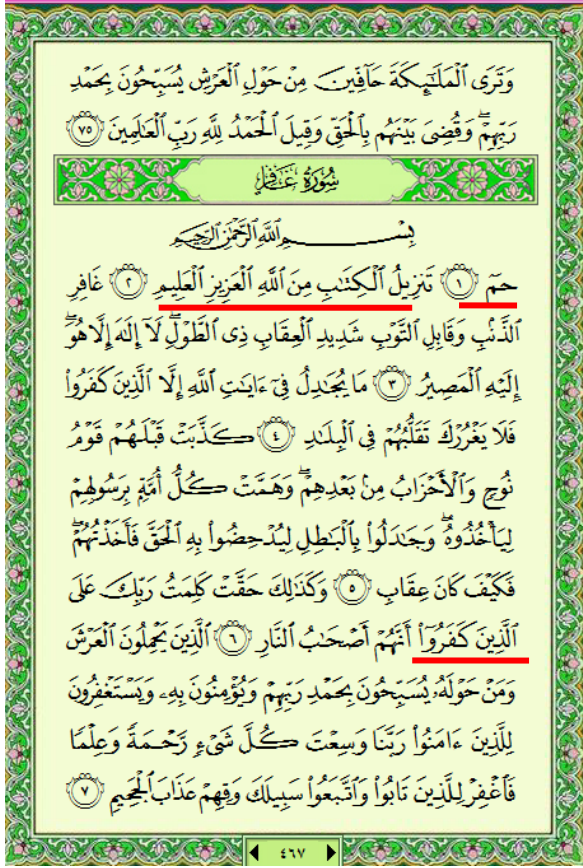 وَتَرَى ٱلْمَلَـٰٓئِكَةَ حَآفِّينَ مِنْ حَوْلِ ٱلْعَرْشِ يُسَبِّحُونَ بِحَمْدِ
رَبِّهِمْ ۖ وَقُضِىَ بَيْنَهُم بِٱلْحَقِّ وَقِيلَ ٱلْحَمْدُ لِلَّهِ رَبِّ ٱلْعَـٰلَمِينَ ٧٥
سُورَةُ غَافِرٍ
بِسْمِ ٱللَّهِ ٱلرَّحْمَـٰنِ ٱلرَّحِيمِ
حمٓ ١ تَنزِيلُ ٱلْكِتَـٰبِ مِنَ ٱللَّهِ ٱلْعَزِيزِ ٱلْعَلِيمِ ٢ غَافِرِ
ٱلذَّنۢبِ وَقَابِلِ ٱلتَّوْبِ شَدِيدِ ٱلْعِقَابِ ذِى ٱلطَّوْلِ ۖ لَآ إِلَـٰهَ إِلَّا هُوَ ۖ
إِلَيْهِ ٱلْمَصِيرُ ٣ مَا يُجَـٰدِلُ فِىٓ ءَايَـٰتِ ٱللَّهِ إِلَّا ٱلَّذِينَ كَفَرُوا۟
فَلَا يَغْرُرْكَ تَقَلُّبُهُمْ فِى ٱلْبِلَـٰدِ ٤ كَذَّبَتْ قَبْلَهُمْ قَوْمُ
نُوحٍ وَٱلْأَحْزَابُ مِنۢ بَعْدِهِمْ ۖ وَهَمَّتْ كُلُّ أُمَّةٍۭ بِرَسُولِهِمْ
لِيَأْخُذُوهُ ۖ وَجَـٰدَلُوا۟ بِٱلْبَـٰطِلِ لِيُدْحِضُوا۟ بِهِ ٱلْحَقَّ فَأَخَذْتُهُمْ ۖ
فَكَيْفَ كَانَ عِقَابِ ٥ وَكَذَٰلِكَ حَقَّتْ كَلِمَتُ رَبِّكَ عَلَى
ٱلَّذِينَ كَفَرُوٓا۟ أَنَّهُمْ أَصْحَـٰبُ ٱلنَّارِ ٦ ٱلَّذِينَ يَحْمِلُونَ ٱلْعَرْشَ
وَمَنْ حَوْلَهُۥ يُسَبِّحُونَ بِحَمْدِ رَبِّهِمْ وَيُؤْمِنُونَ بِهِۦ وَيَسْتَغْفِرُونَ
لِلَّذِينَ ءَامَنُوا۟ رَبَّنَا وَسِعْتَ كُلَّ شَىْءٍ رَّحْمَةً وَعِلْمًا
فَٱغْفِرْ لِلَّذِينَ تَابُوا۟ وَٱتَّبَعُوا۟ سَبِيلَكَ وَقِهِمْ عَذَابَ ٱلْجَحِيمِ ٧
٤٦٧